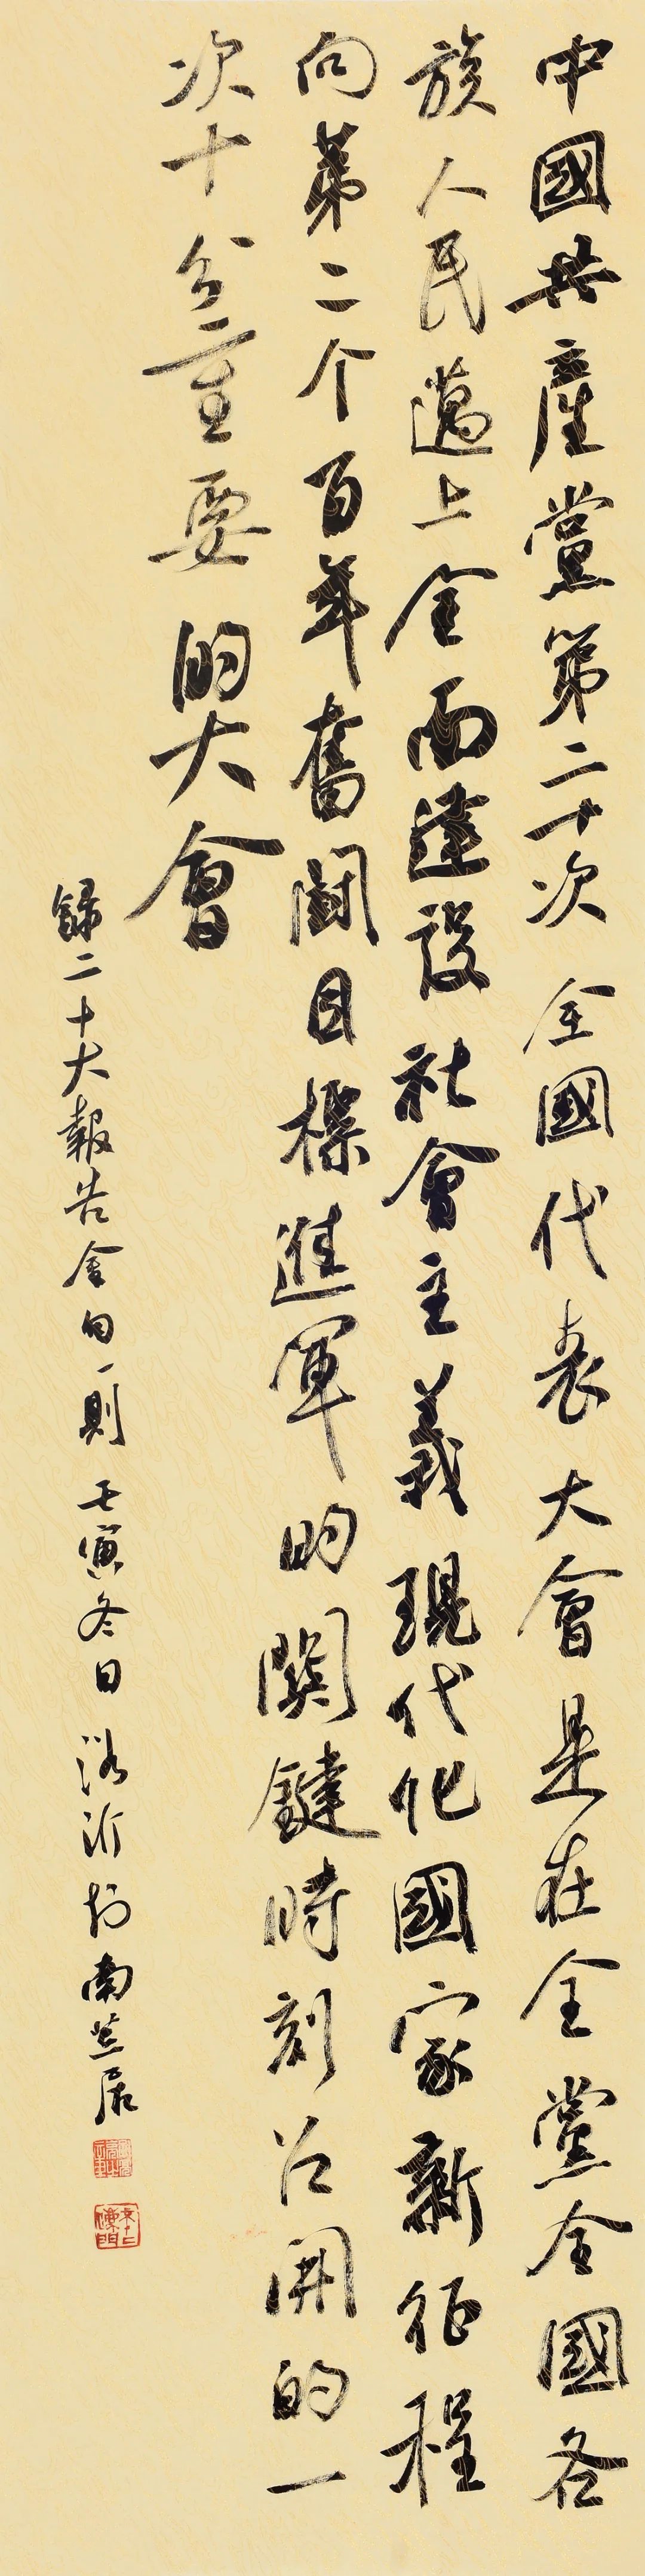 中國共產黨第二十次全國代表大會是在全黨全國各
族人民邁上全面建設社會主義現代化國家新征程
向第二个百年奮鬪目標進軍的關鍵時刻召開的一
次十分重要的大會
錄二十大報告金句一則 壬寅冬日 於南芷居